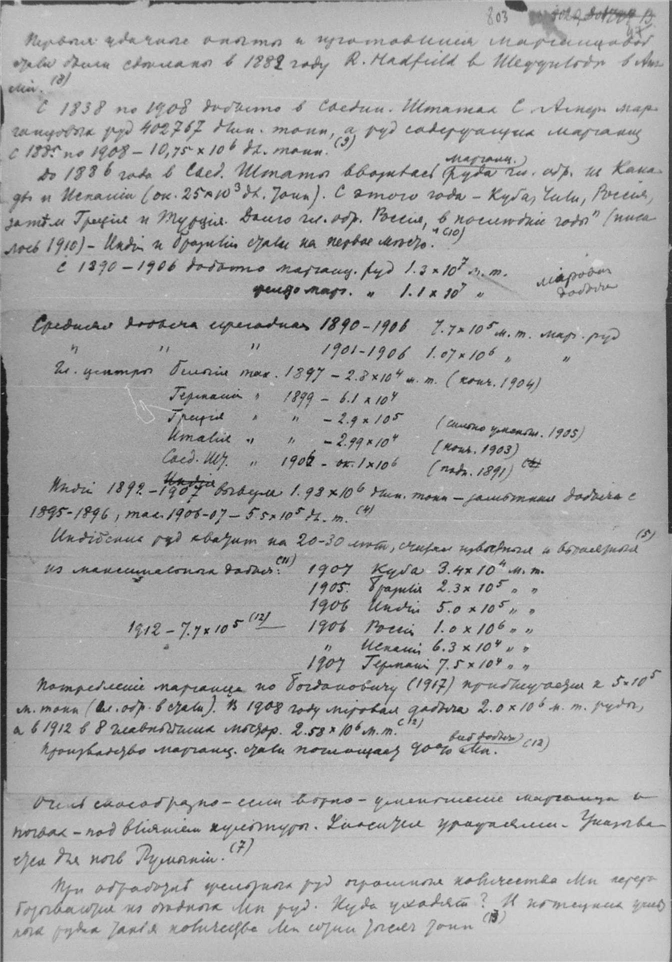 803
Первые удачные опыты и изготовления марганцовой
стали были сделаны в 1882 году R. Hadfield в Шеффильде в Анг
лии. (8)
С 1838 по 1908 добыто в Соедин. Штатах С. Амер. мар
ганцовых руд 402767 длин. тонн, а руд содержащих марганец
с 1885 по 1908 – 10,75×10⁶ дл. тонн. (9)
До 1886 года в Соед. Штаты ввозилась марганц. руда гл. обр. из Кана
ды и Испании (ок. 25×10³ дл. тонн). С этого года – Куба, Чили, Россия,
затѣм Греція и Турція. Долго гл. обр. Россія, в послѣдніе годы" (писа
лось 1910) – Индія и Бразилія стали на первое мѣсто. (10)
С 1890–1906 добыто марганц. руд 1.3×10⁷ м. т.
желѣзо марг. " 1.1×10⁷ "
міровая добыча
Средняя добыча ежегодная 1890–1906 7.7×10⁵ м. т. марг. руд
" " " 1901–1906 1.07×10⁶ " "
Гл. центры Бельгія max. 1897 – 2.8×10⁴ м. т. (конч. 1904)
Германія " 1899 – 6.1×10⁴
Греція " " – 2.9×10⁵ (сильно уменьш. 1905)
Италія " " – 2.99×10⁴ (конч. 1903)
Соед. Шт. " 1902 – ок. 1×10⁶ (1891)
Индія 1892–1907 вывезла 1.98×10⁶ длин. тонн – замѣтная добыча с
1895–1896, max. 1906–07 – 5.5×10⁵ дл. т. (4)
Индійских руд хватит на 20–30 лѣт, считая и (5)
из максимальной добычи: (11) 1907 Куба 3.4×10⁴ м. т.
1905 Бразилія 2.3×10⁵ " "
1906 Индія 5.0×10⁵ " "
1912 – 7.7×10⁵ (12) 1906 Россія 1.0×10⁶ " "
" Испанія 6.3×10⁴ " "
1907 Германія 7.5×10⁴ " "
Потребленіе марганца по Богдановичу (1917) приближается к 5×10⁵
м. тонн (гл. обр. в стали). В 1908 году міровая добыча 2.0×10⁶ м. т. руды,
а в 1912 в 8 главнѣйших 2.53×10⁶ м. т. (12)
Производство марганц. стали поглощает 90% всей добычи Mn. (12)
Очень своеобразно – если вѣрно – уменьшеніе марганца в
почвах – под вліяніем культуры. Уносится урожаями. – Указыва
ется для почв Румыніи. (7)
При обработкѣ желѣзных руд огромныя количества Mn перера
батываются из бѣдных Mn руд. Куда уходят? И
количества Mn тысяч тонн (13)